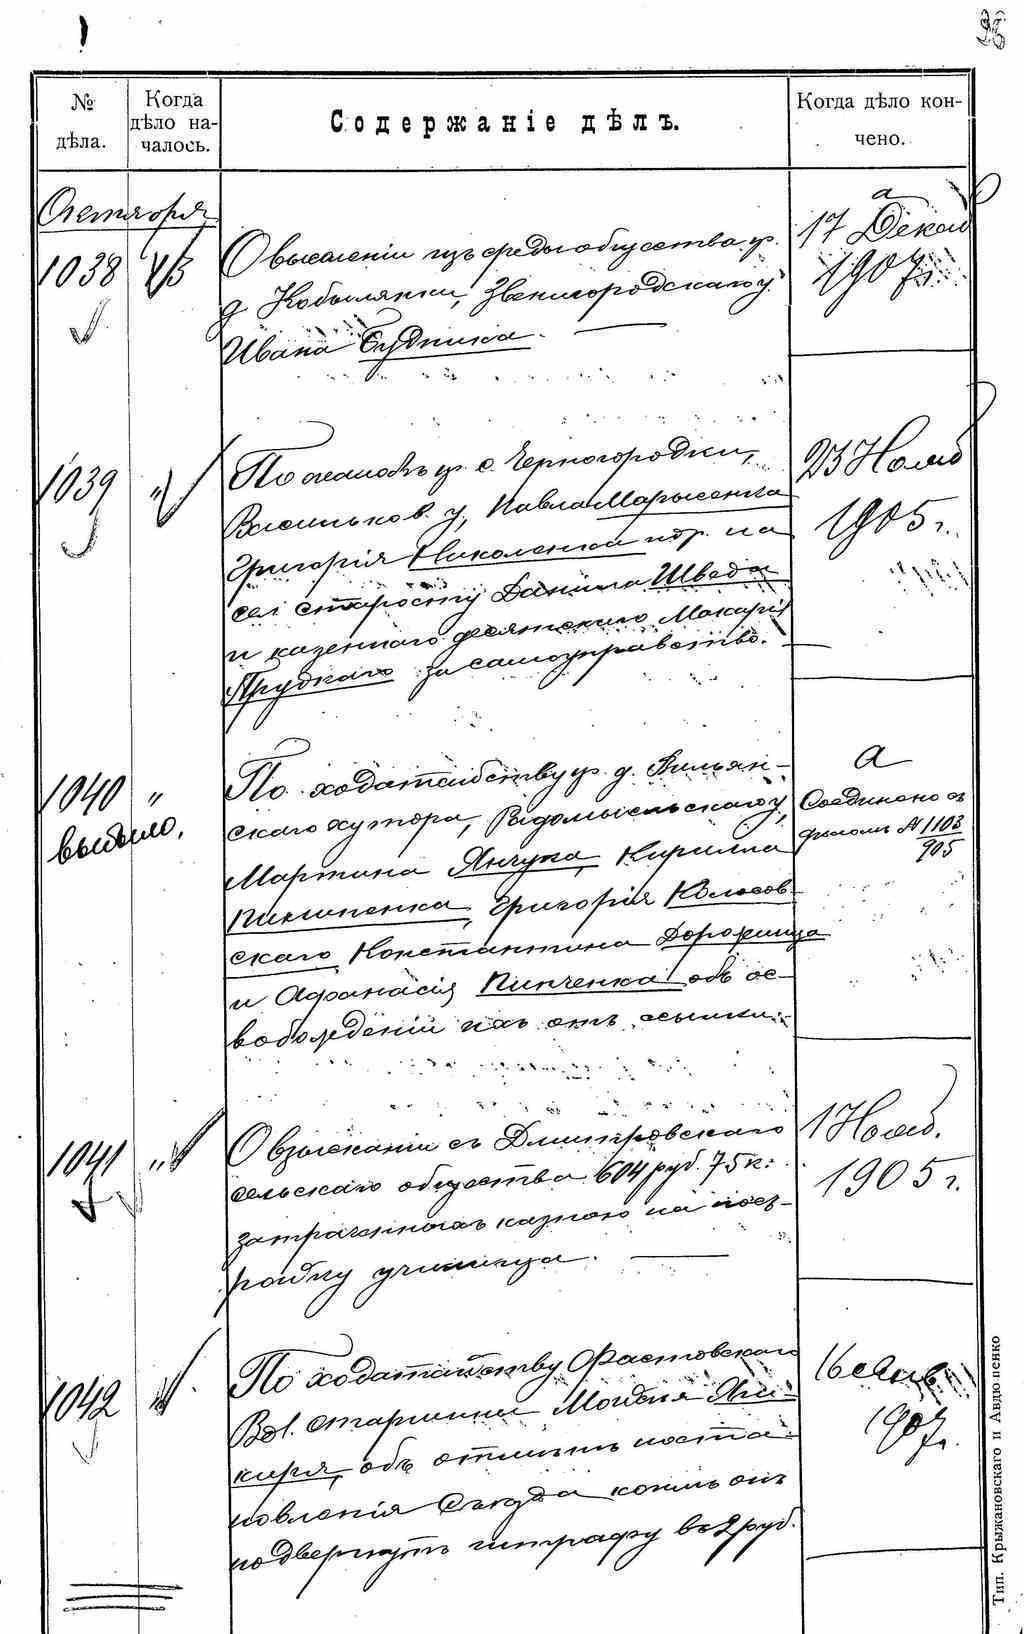 № дѣла.
Когда дѣло началось.
Содержаніе дѣлъ.
Когда дѣло кончено.
Октября
1038 4/3
О выселеніи изъ среды общества кр.
д. Кобылянки, Звенигородскаго у.
Ивана Будника.
17 Декаб
1907 г.
1039 "
По жалобѣ кр. с. Черногородки,
Васильков. у, Павла Марысенка
Григорія Николенка и др. на
сел старосту Данила Шведа
и казеннаго десятскаго Макарія
Прудкаго за самоуправство.
23 Нояб
1905 г.
1040 "
выбыло.
По ходатайству кр. д. Вильян-
скаго хутора, Радомысльскаго у,
Мартина Янчука, Кирилла
Пилипенка, Григорія Колосов-
скаго, Константина Дорофица
и Афанасія Пинченка объ ос-
вобожденіи ихъ отъ ссылки.
а
Соединено съ
дѣломъ № 1103/905
1041 "
О взысканіи съ Дмитровскаго
сельскаго общества 604 руб. 75 к:
затраченныхъ казною на пост-
ройку училища.
1 Нояб.
1905 г.
1042 "
По ходатайству Фастовскаго
Вол. старшины Мойсея
объ отмѣнѣ поста-
новленія Съѣзда коимъ онъ
подвергнутъ штрафу въ 2 руб.
16 Янв
1907 г.
Тип. Крыжановскаго и Авдюшенко